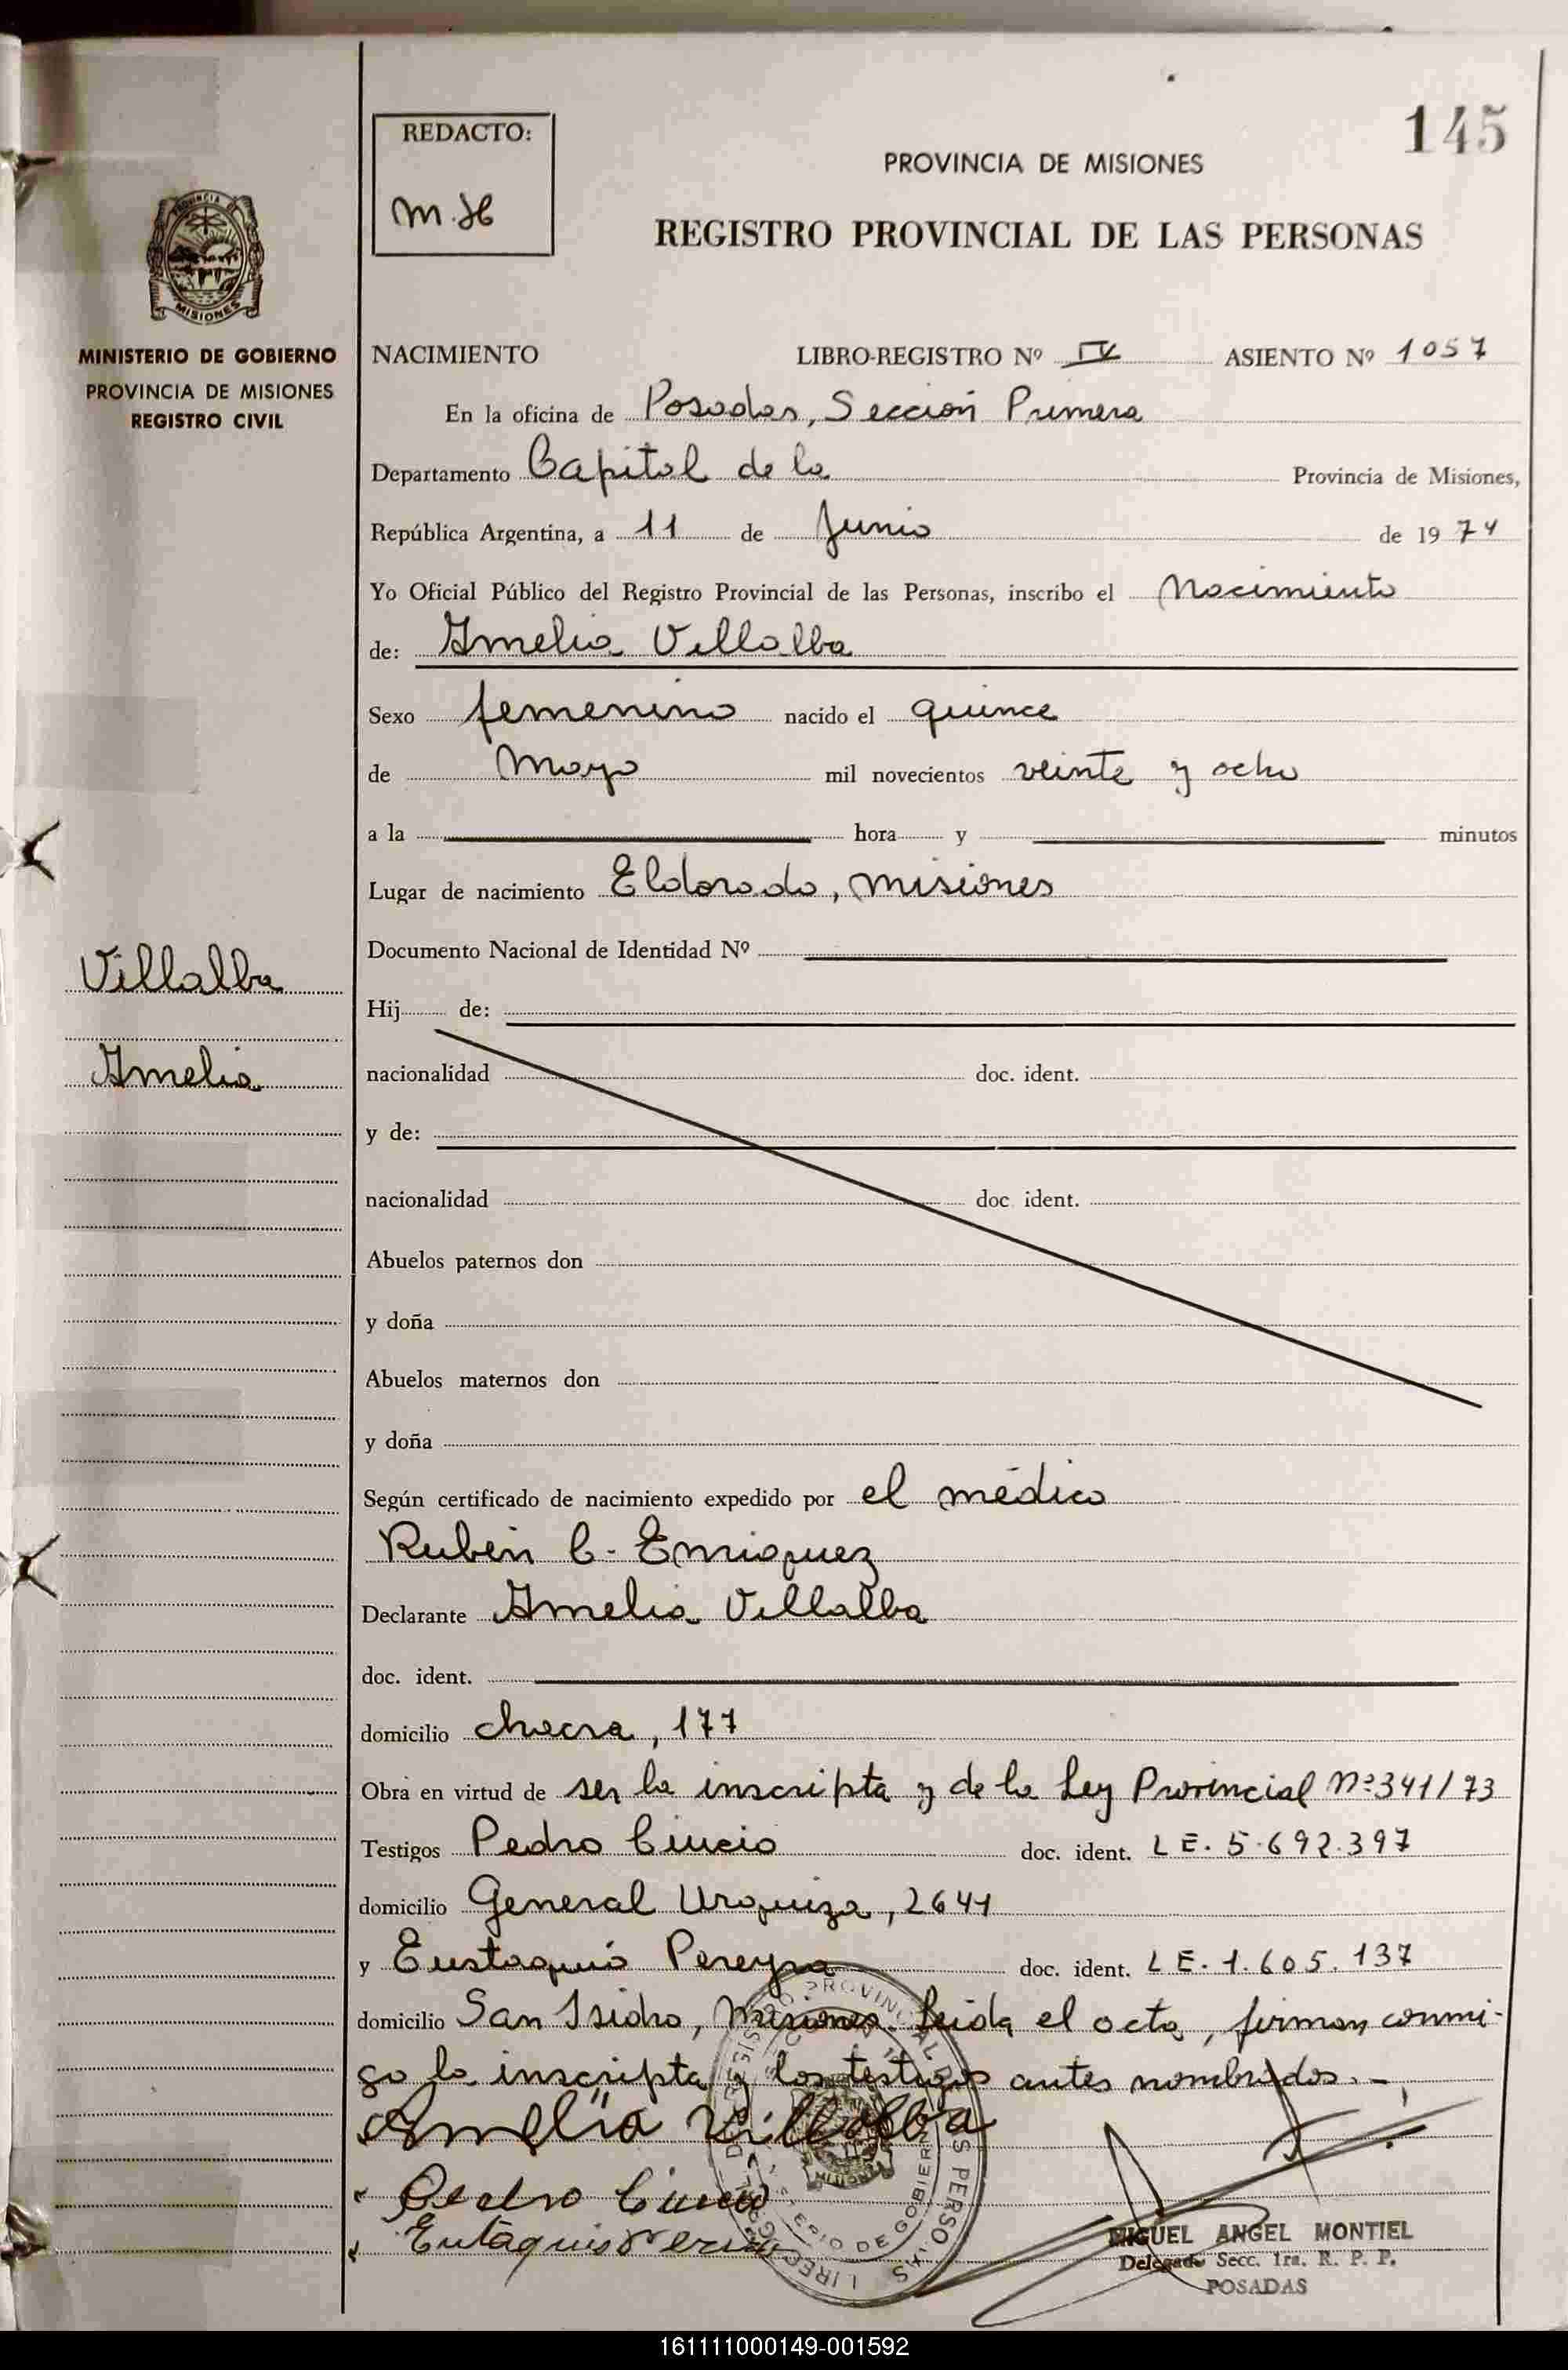 145
REDACTO:
M.H
PROVINCIA DE MISIONES
REGISTRO PROVINCIAL DE LAS PERSONAS
PROVINCIA DE
MISIONES
MINISTERIO DE GOBIERNO
PROVINCIA DE MISIONES
REGISTRO CIVIL
NACIMIENTO LIBRO-REGISTRO Nº IV ASIENTO Nº 1057
En la oficina de Posadas, Sección Primera
Departamento Capital de la Provincia de Misiones,
República Argentina, a 11 de Junio de 1974
Yo Oficial Público del Registro Provincial de las Personas, inscribo el Nacimiento
de: Amelia Villalba
Sexo femenino nacido el quince
de Mayo mil novecientos veinte y ocho
a la hora y minutos
Lugar de nacimiento Eldorado, Misiones
Documento Nacional de Identidad Nº
Villalba
Amelia
Hij de:
nacionalidad doc. ident.
y de:
nacionalidad doc ident.
Abuelos paternos don
y doña
Abuelos maternos don
y doña
Según certificado de nacimiento expedido por el médico
Rubén C. Enriquez
Declarante Amelia Villalba
doc. ident.
domicilio chacra, 177
Obra en virtud de ser la inscripta y de la Ley Provincial Nº 341/73
Testigos Pedro doc. ident. L E. 5.692.397
domicilio General Urquiza, 2641
y Eustaquio Pereyra doc. ident. L E. 1.605.137
domicilio San Isidro, Misiones. Leida el acta, firman conmi-
go la inscripta y los testigos antes nombrados.-
Amelia Villalba
Pedro
Eutaquio
MIGUEL ANGEL MONTIEL
Delegado Secc. 1ra. R. P. P.
POSADAS
161111000149-001592